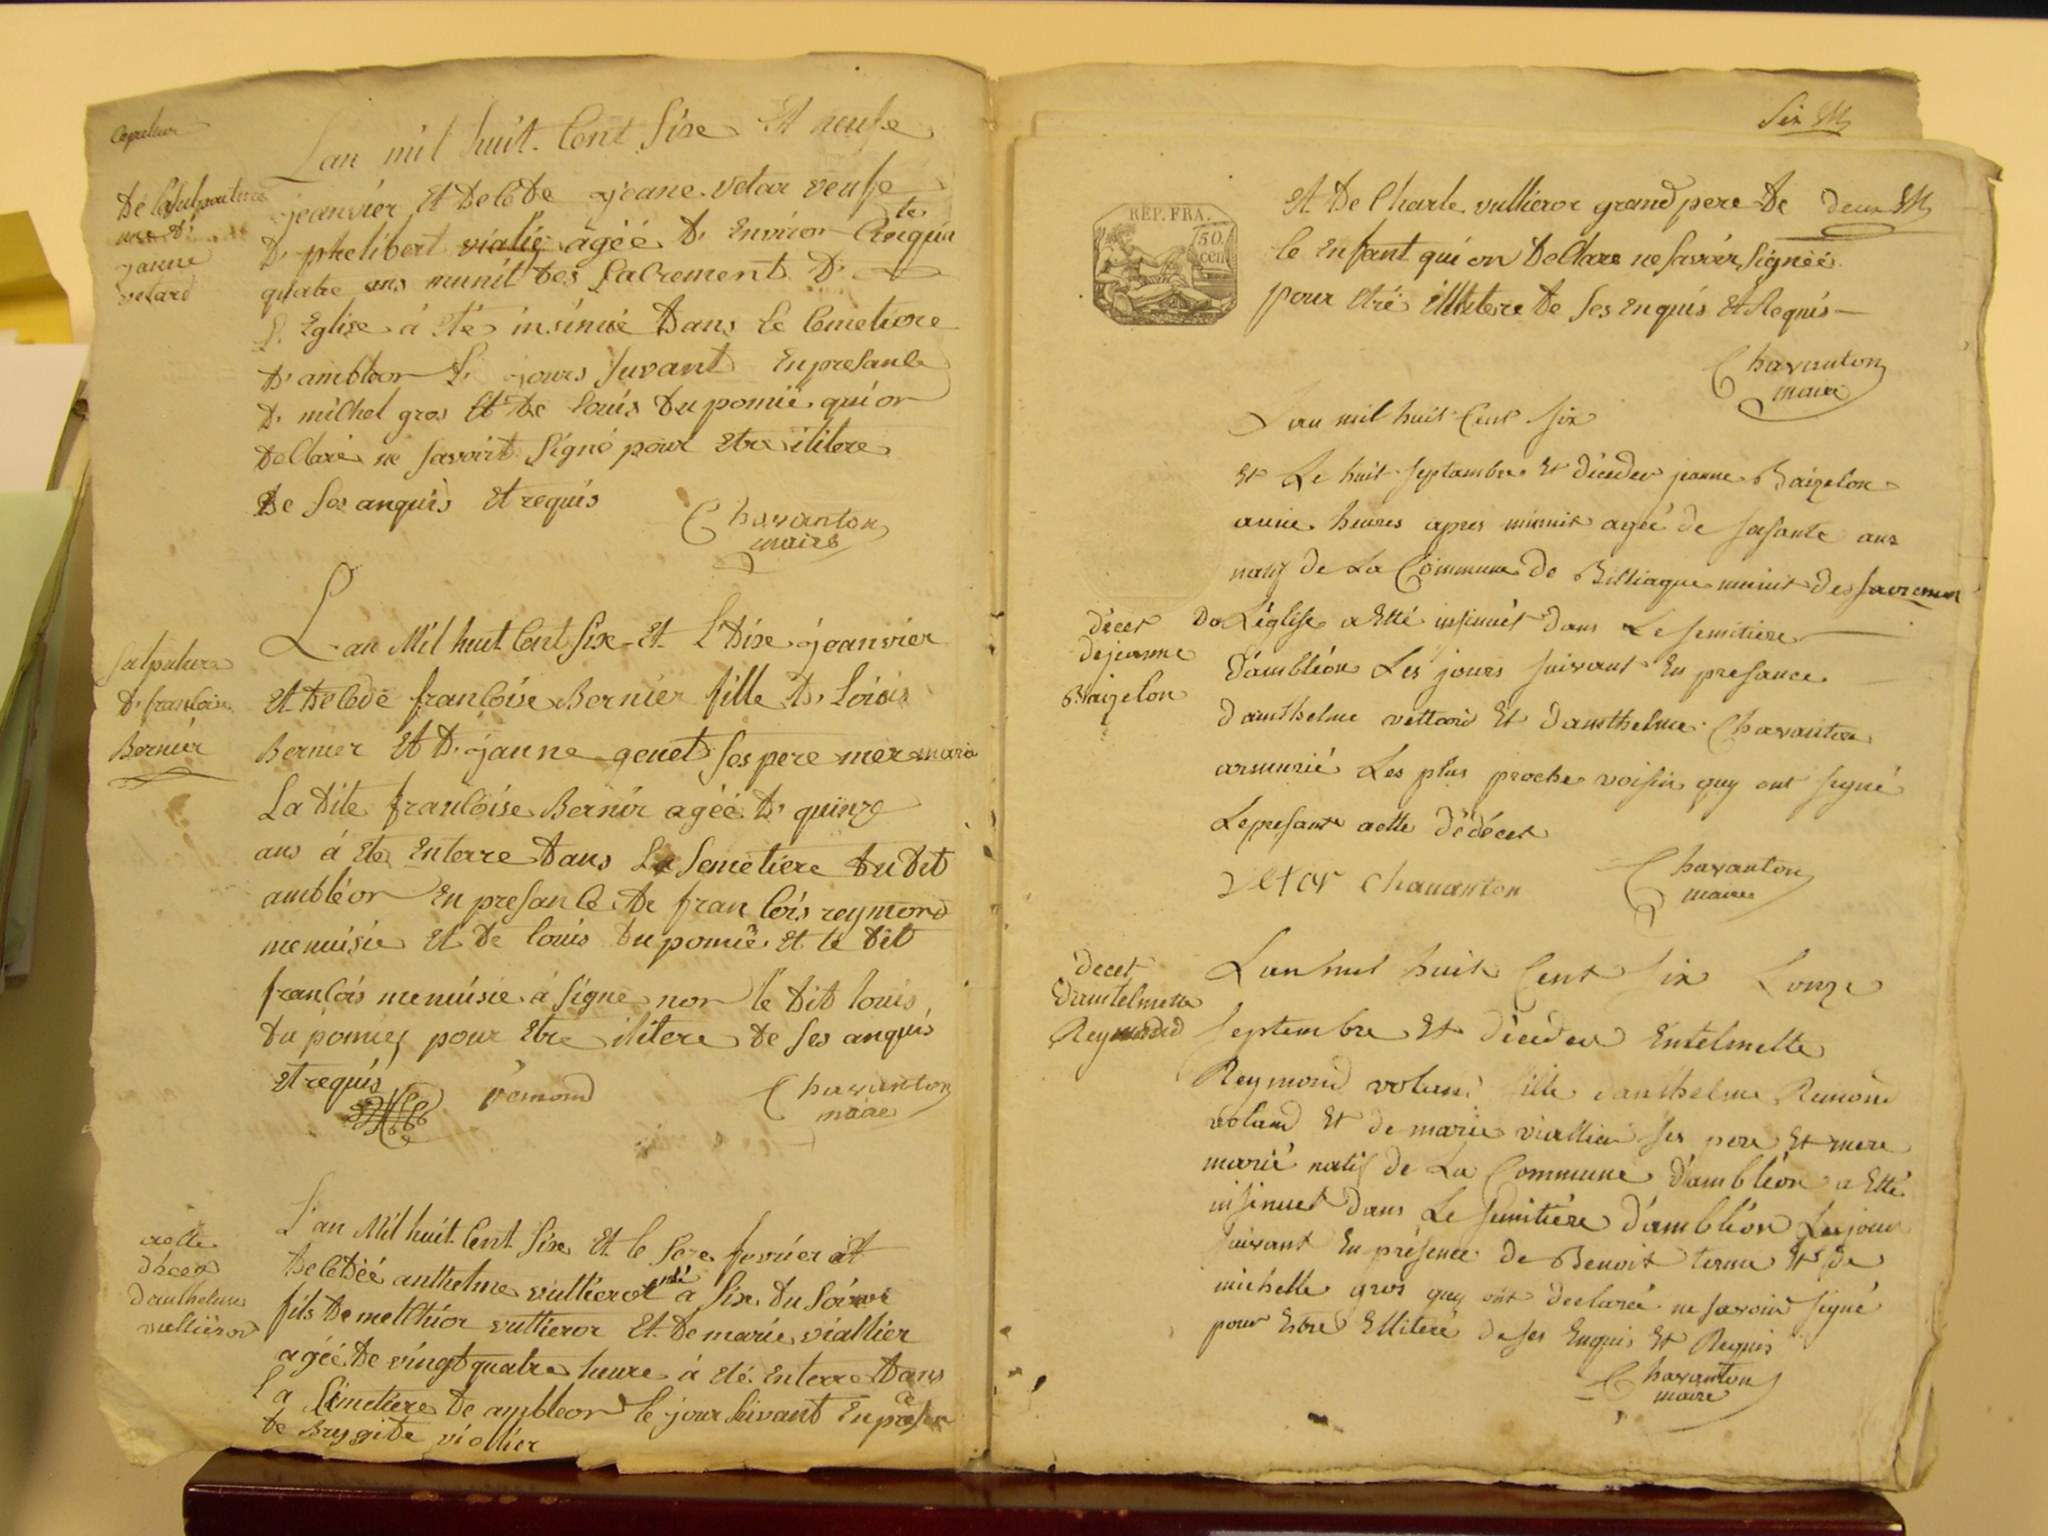 Lan mil huit Cent Sixe Et neufe
de la Sulpouture
jeanvier Et deCede jeane vetar veufe
D. phelibert vialiy agéé D. Environ Cinquante
janne
vetard
quatre ans munit des SaCrement D.
L. Eglise á Eté insinué Dans Le Cemetiere
D. ambleon L. jours Suvant En presanCe
D. miChel gros Et De Louis Dupomié qui on
DeClaré ne Savoirt Signé pour Etre ilitere
De Ses anquis Et requis
Chavanton
maire
Lan Mil huit Cent Sixe Et L Dixe jeanvier
Salpulture
D. franCoise
Bernier
Et deCedé franCoise Bernier fille D. Loiois
Bernier Et D. janne genet Ses pere mere marie
La Dite franCoise Bernir agéé D. quinze
ans á Ete Enterre Dans La Semetiere Du Dit
ambléon En presanCe De franCois reymond
menuisie Et De Louis Dupomié Et le Dit
franCois menuisie á Signe non le Dit louis
Dupomiey pour Etre ilitere De Ses anquis
Et requis
remond
Chavanton
maire
Lan Mil huit Cent Sixe Et le Seze fevrier Et
aCtte
déces
danthelme
vullierod
DeCédéé anthelme vullierot á Sixe Du Soir
fils De melChior vullieror Et De marie viallier
agéé De vingt quatre heure á eté Enterre Dans
La Simetiere De ambleon le jour Suivant En presenCe
De Brygite viollier
Six
REP. FRA.
50.
cen
Et De Charle vullieror grand pere De
deux
le Enfant qui on DeClare ne Savoir Signéé
pour Etre illetere De Ses Enquis Et Requis
Chavanton
maire
Lan mil huit Cent Six
Et Le huit Septambre Et décéder jeanne Baizelon
a une heures apres minuit ageé de Sosante ans
natif de La Commune de Billiague munit des Sacremen
décet
de jeanne
Baizelon
De L'église a Etté insinuét dans Le Semitiere
d'ambléon Les jours Suivant En presance
d'anthelme vettard Et danthelme Chavanton
armurié Les plus proche voisin quy ont Signé
Le presante actte de décet
vetar Chauanton
Chavanton
maire
decet
dantelmette
Reymond
Lan mil huit Cent Six Lonze
Septembre Et décéder Entelmette
Reymond voland fille danthelme Remond
voland Et de marie viallier Ses pere Et mere
marié natif de La Commune d'ambléon a Etté
insinuet dans Le Semitiére d'ambléon Les jour
Suivant En présence de Benoit terme Et de
michelle gros quy ont declaréé ne Savoir Signé
pour Estre Ellitere de Ses Enquis Et Requis
Chavanton
maire